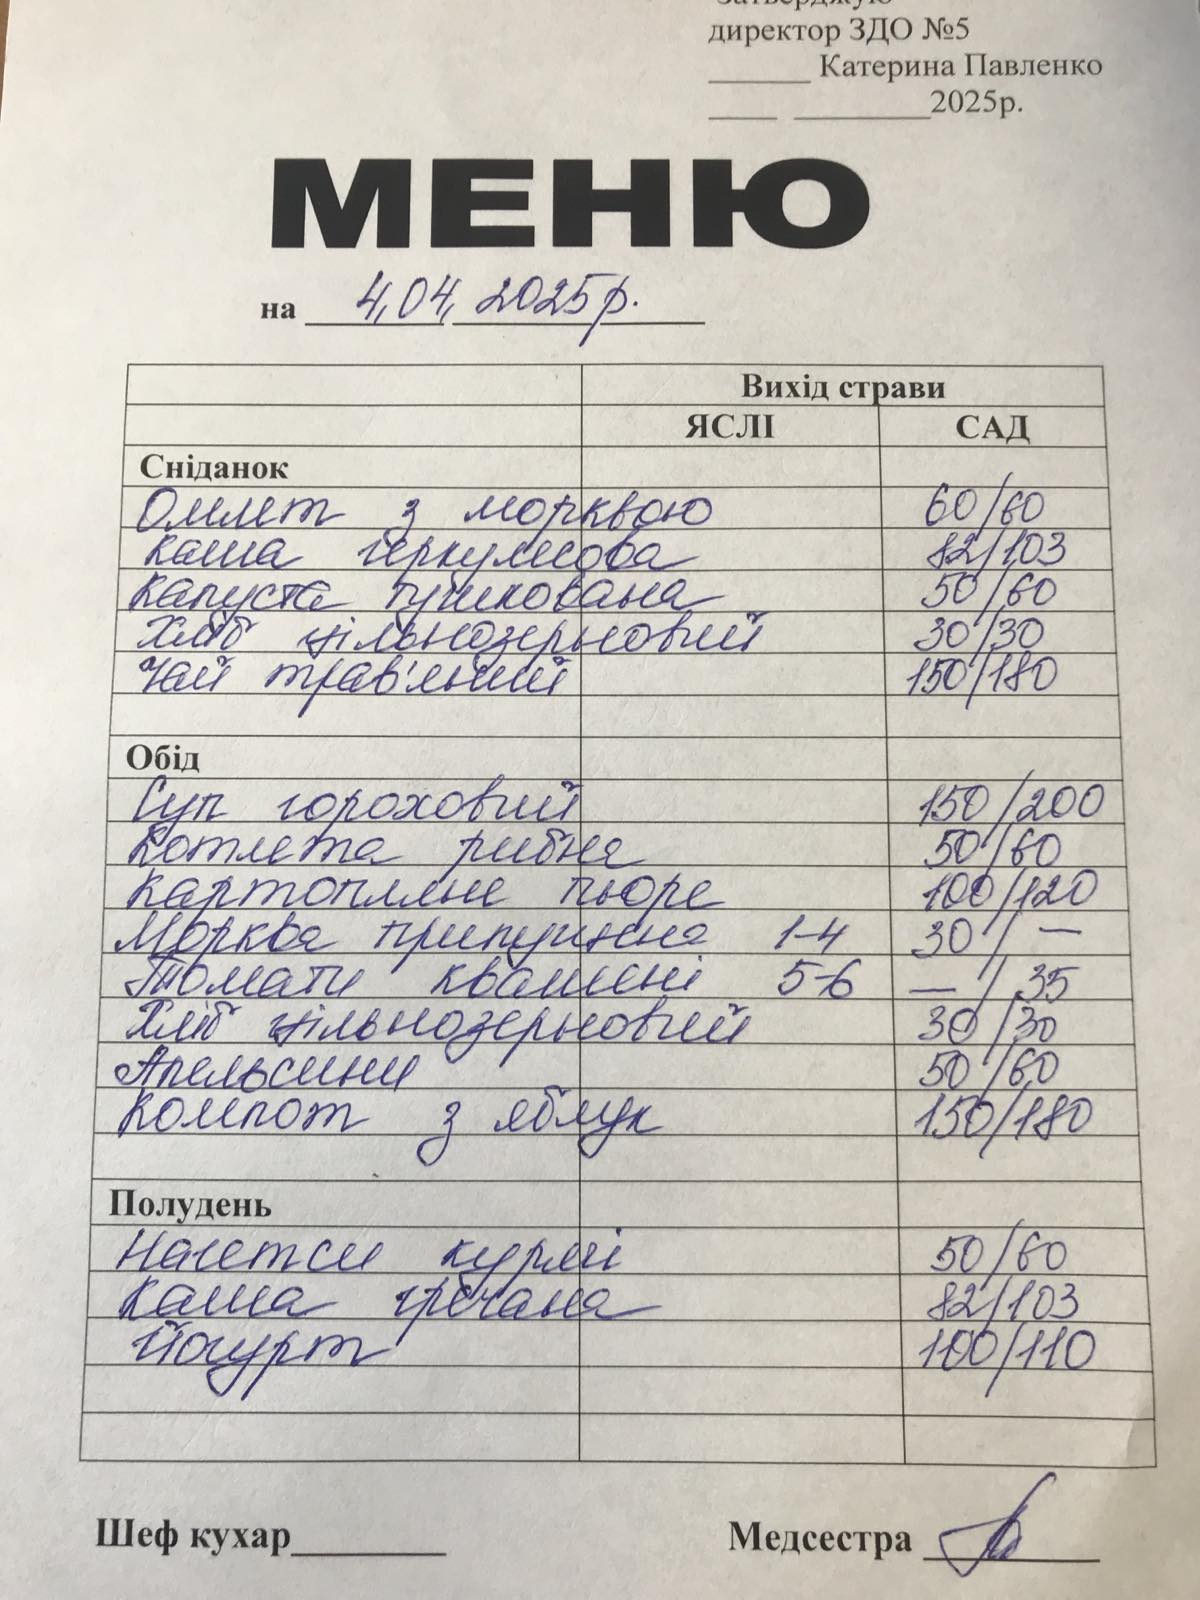 Затверджую
директор ЗДО №5
______ Катерина Павленко
____ ________2025р.
МЕНЮ
на 4,04, 2025р.
Вихід страви
ЯСЛІ САД
Сніданок
Омлет з морквою 60/60
Каша геркулесова 82/103
Капуста тушкована 50/60
Хліб цільнозерновий 30/30
Чай трав'яний 150/180
Обід
Суп гороховий 150/200
Котлета рибна 50/60
Картопляне пюре 100/120
Морква припущена 1-4 30/—
Томати квашені 5-6 —/35
Хліб цільнозерновий 30/30
Апельсини 50/60
Компот з яблук 150/180
Полудень
Нагетси курячі 50/60
Каша гречана 82/103
Йогурт 100/110
Шеф кухар________ Медсестра ________